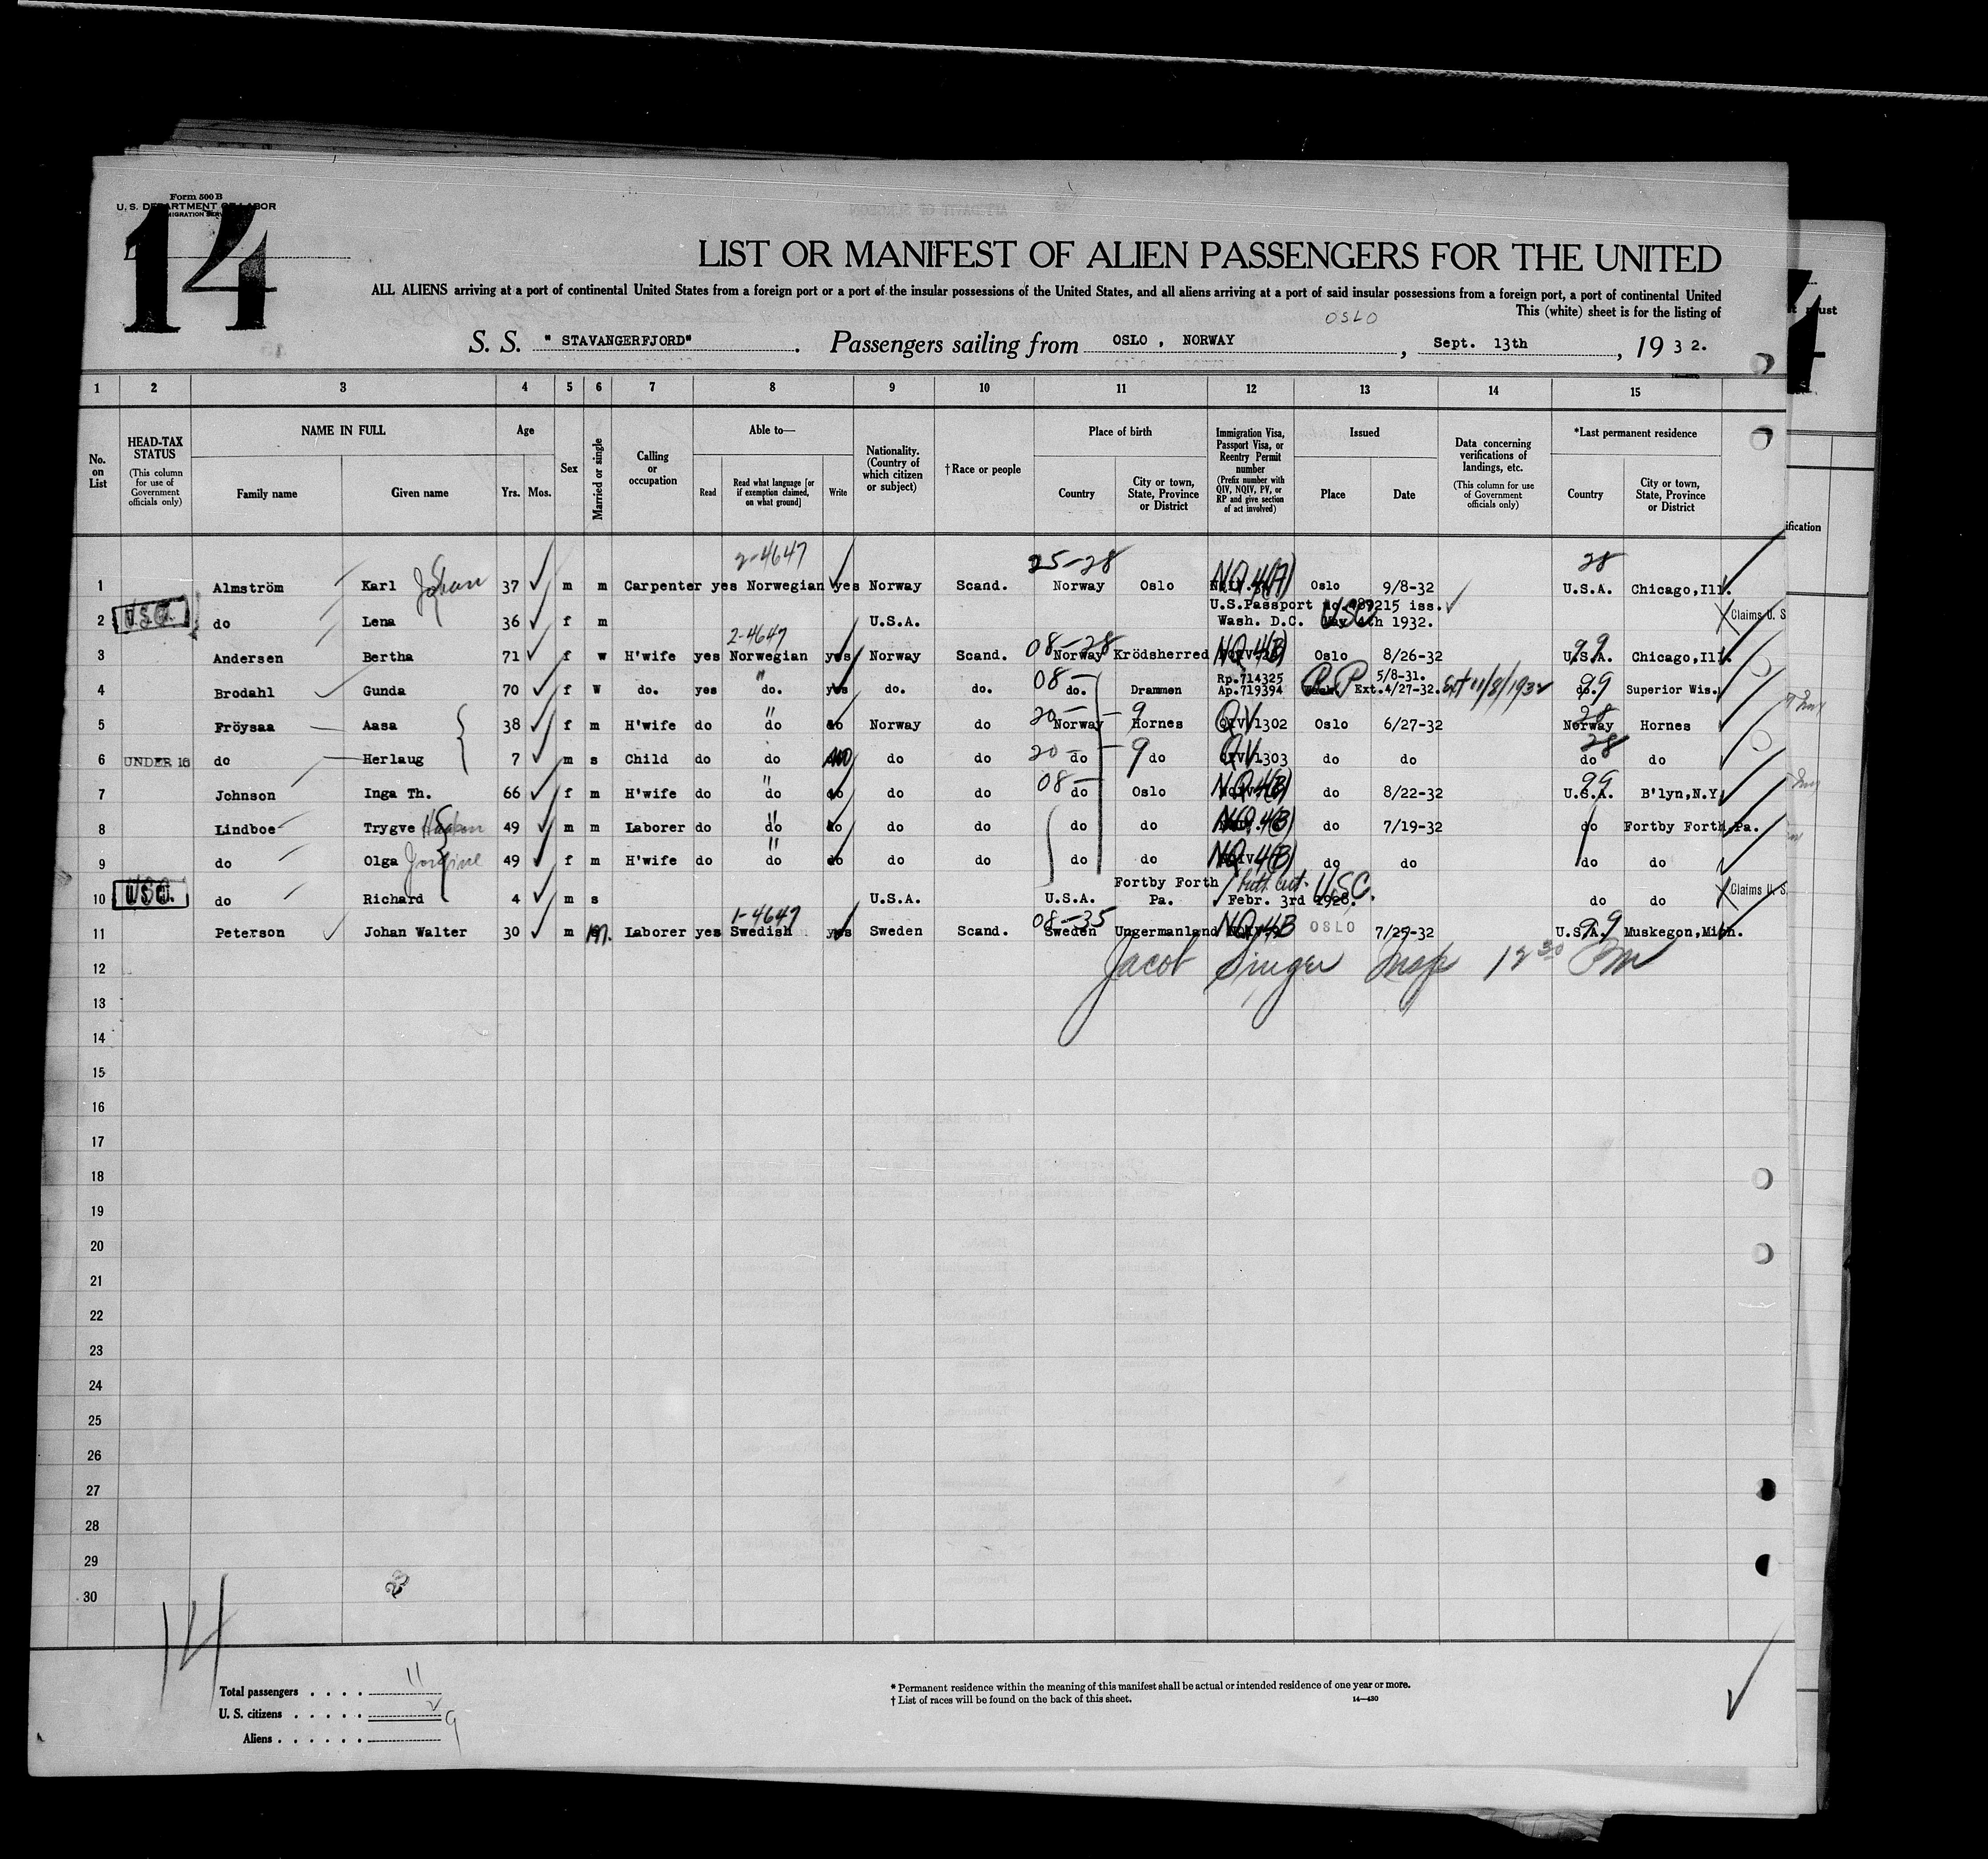 Form 500 B
U. S. DEPARTMENT OF LABOR
14
LIST OR MANIFEST OF ALIEN PASSENGERS FOR THE UNITED
ALL ALIENS arriving at a port of continental United States from a foreign port or a port of the insular possessions of the United States, and all aliens arriving at a port of said insular possessions from a foreign port, a port of continental United
This (white) sheet is for the listing of
OSLO
S. S. " STAVANGERFJORD" . Passengers sailing from OSLO , NORWAY , Sept. 13th , 19 3 2.
1 2 3 4 5 6 7 8 9 10 11 12 13 14 15
No. on List
HEAD-TAX STATUS (This column for use of Government officials only)
NAME IN FULL
Family name Given name
Age
Yrs. Mos.
Sex
Married or single
Calling or occupation
Able to—
Read
Read what language [or if exemption claimed, on what ground]
Write
Nationality. (Country of which citizen or subject)
† Race or people
Place of birth
Country
City or town, State, Province or District
Immigration Visa, Passport Visa, or Reentry Permit number (Prefix number with QIV, NQIV, PV, or RP and give section of act involved)
Issued
Place Date
Data concerning verifications of landings, etc. (This column for use of Government officials only)
*Last permanent residence
Country
City or town, State, Province or District
2-4647 25-28 28
1 Almström Karl Johan 37 m m Carpenter yes Norwegian yes Norway Scand. Norway Oslo NQ 4(A) Oslo 9/8-32 U.S.A. Chicago, Ill.
U.S.Passport no.489215 iss.
2 U.S.C. do Lena 36 f m U.S.A. Wash. D.C. May 4th 1932. USC Claims U. S
2-4647 08-28 99
3 Andersen Bertha 71 f w H'wife yes Norwegian yes Norway Scand. Norway Krödsherred NQ 4(B) Oslo 8/26-32 U.S.A. Chicago, Ill.
08- Rp.714325 5/8-31.
4 Brodahl Gunda 70 f w do. yes " do. yes do. do. do. Drammen Ap.719394 R P Wash. Ext.4/27-32. Ext 11/8/1932 99 do. Superior Wis.
5 Fröysaa Aasa 38 f m H'wife do " do do Norway do 20- Norway 9 Hornes QIV 1302 Oslo 6/27-32 28 Norway Hornes
6 UNDER 16 do Herlaug 7 m s Child do do NO do do 20- do 9 do QIV 1303 do do 28 do do
7 Johnson Inga Th. 66 f m H'wife do " do do do do 08- do Oslo NQ 4(B) do 8/22-32 99 U.S.A. B'lyn,N.Y.
8 Lindboe Trygve 49 m m Laborer do " do do do do do do NQ 4(B) do 7/19-32 do Fortby Forth, Pa.
9 do Olga 49 f m H'wife do " do do do do do do NQ 4(B) do do do do
Fortby Forth
10 U.S.C. do Richard 4 m s U.S.A. U.S.A. Pa. Febr. 3rd 1928. U.S.C. do do Claims U. S
1-4647 08-35 99
11 Peterson Johan Walter 30 m m. Laborer yes Swedish yes Sweden Scand. Sweden Ungermanland NQ 4B OSLO 7/25-32 U.S.A. Muskegon, Mich.
12 Jacob Singer Insp 12 30 PM
13
14
15
16
17
18
19
20
21
22
23
24
25
26
27
28
29
30
14
Total passengers . . . . 11
U. S. citizens . . . . . 2
Aliens . . . . . . 9
* Permanent residence within the meaning of this manifest shall be actual or intended residence of one year or more.
† List of races will be found on the back of this sheet. 14—430